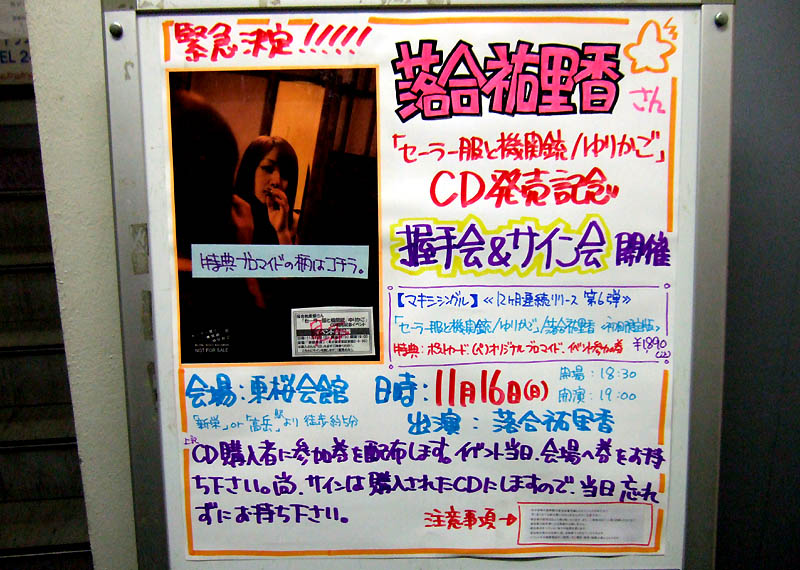 緊急決定!!!!!
落合祐里香さん
「セーラー服と機関銃/ゆりかご」
CD発売記念
握手会&サイン会 開催
特典ブロマイドの柄はコチラ。
【マキシシングル】≪12ヶ月連続リリース 第6弾≫
「セーラー服と機関銃/ゆりかご」/落合祐里香
特典:ポストカード、オリジナルブロマイド、イベント参加券 ¥1,890
NOT FOR SALE
「セーラー服と機関銃/ゆりかご」
会場:東桜会館 日時:11月16日(日)
開場:18:30
開演:19:00
「新栄」or「高岳」駅より徒歩約5分
出演:落合祐里香
上記CD購入者に参加券を配布します。イベント当日、会場へ券をお持
ち下さい。尚、サインは購入されたCDにしますので、当日忘れ
ずにお持ち下さい。
注意事項→
EL 2